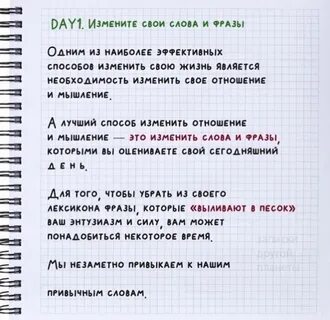 DAY1. Измените свои слова и фразы
Одним из наиболее эффективных
способов изменить свою жизнь является
необходимость изменить свое отношение
и мышление.
А лучший способ изменить отношение
и мышление — это изменить слова и фразы,
которыми вы оцениваете свой сегодняшний
день.
Для того, чтобы убрать из своего
лексикона фразы, которые «выливают в песок»
ваш энтузиазм и силу, вам может
понадобиться некоторое время.
Мы незаметно привыкаем к нашим
привычным словам.